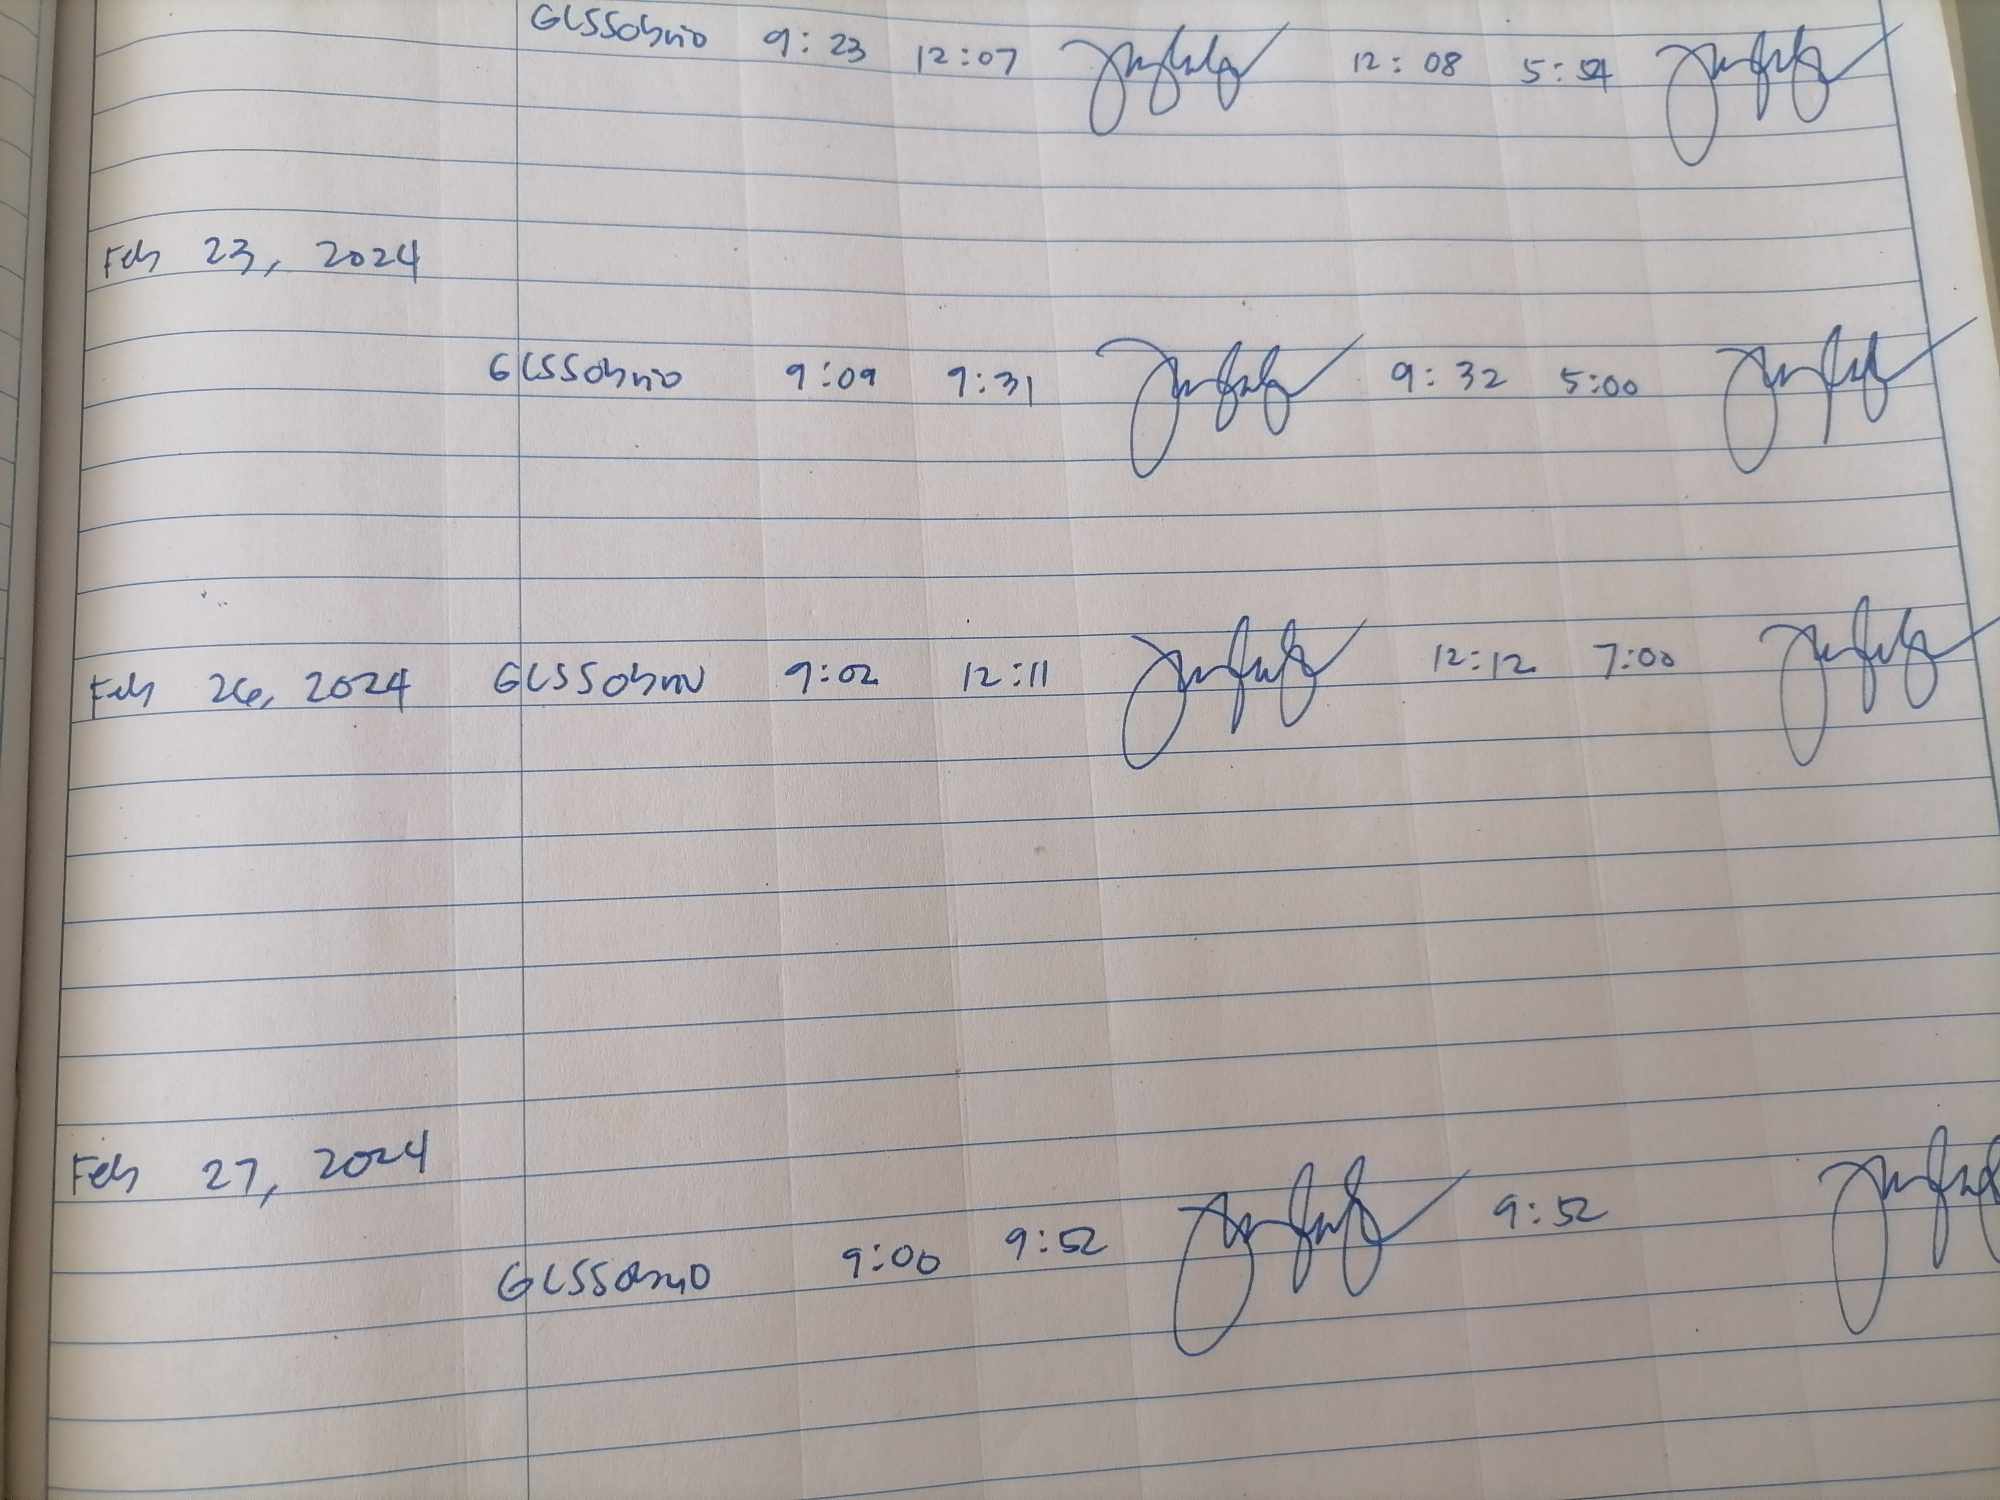 GLSSobrio 9:23 12:07 12:08 5:54
Feb 23, 2024
GLSSobrio 9:09 9:31 9:32 5:00
Feb 26, 2024 GLSSobrio 9:02 12:11 12:12 7:00
Feb 27, 2024
GLSSobrio 9:00 9:52 9:52